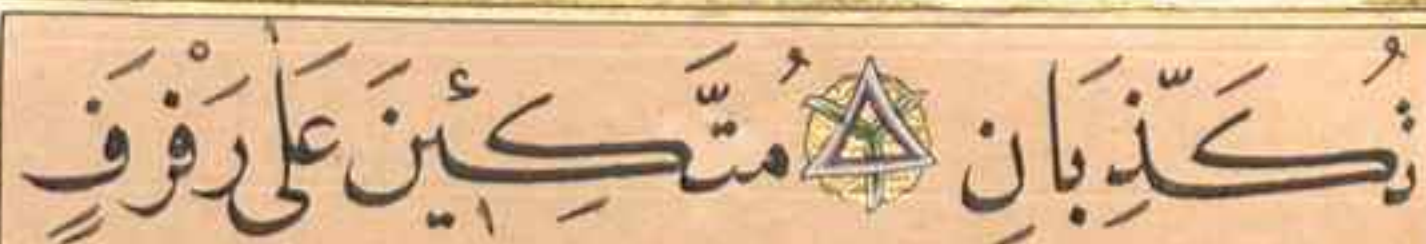 تُكَذِّبَانِ مُتَّكِـِٔينَ عَلٰى رَفْرَفٍ